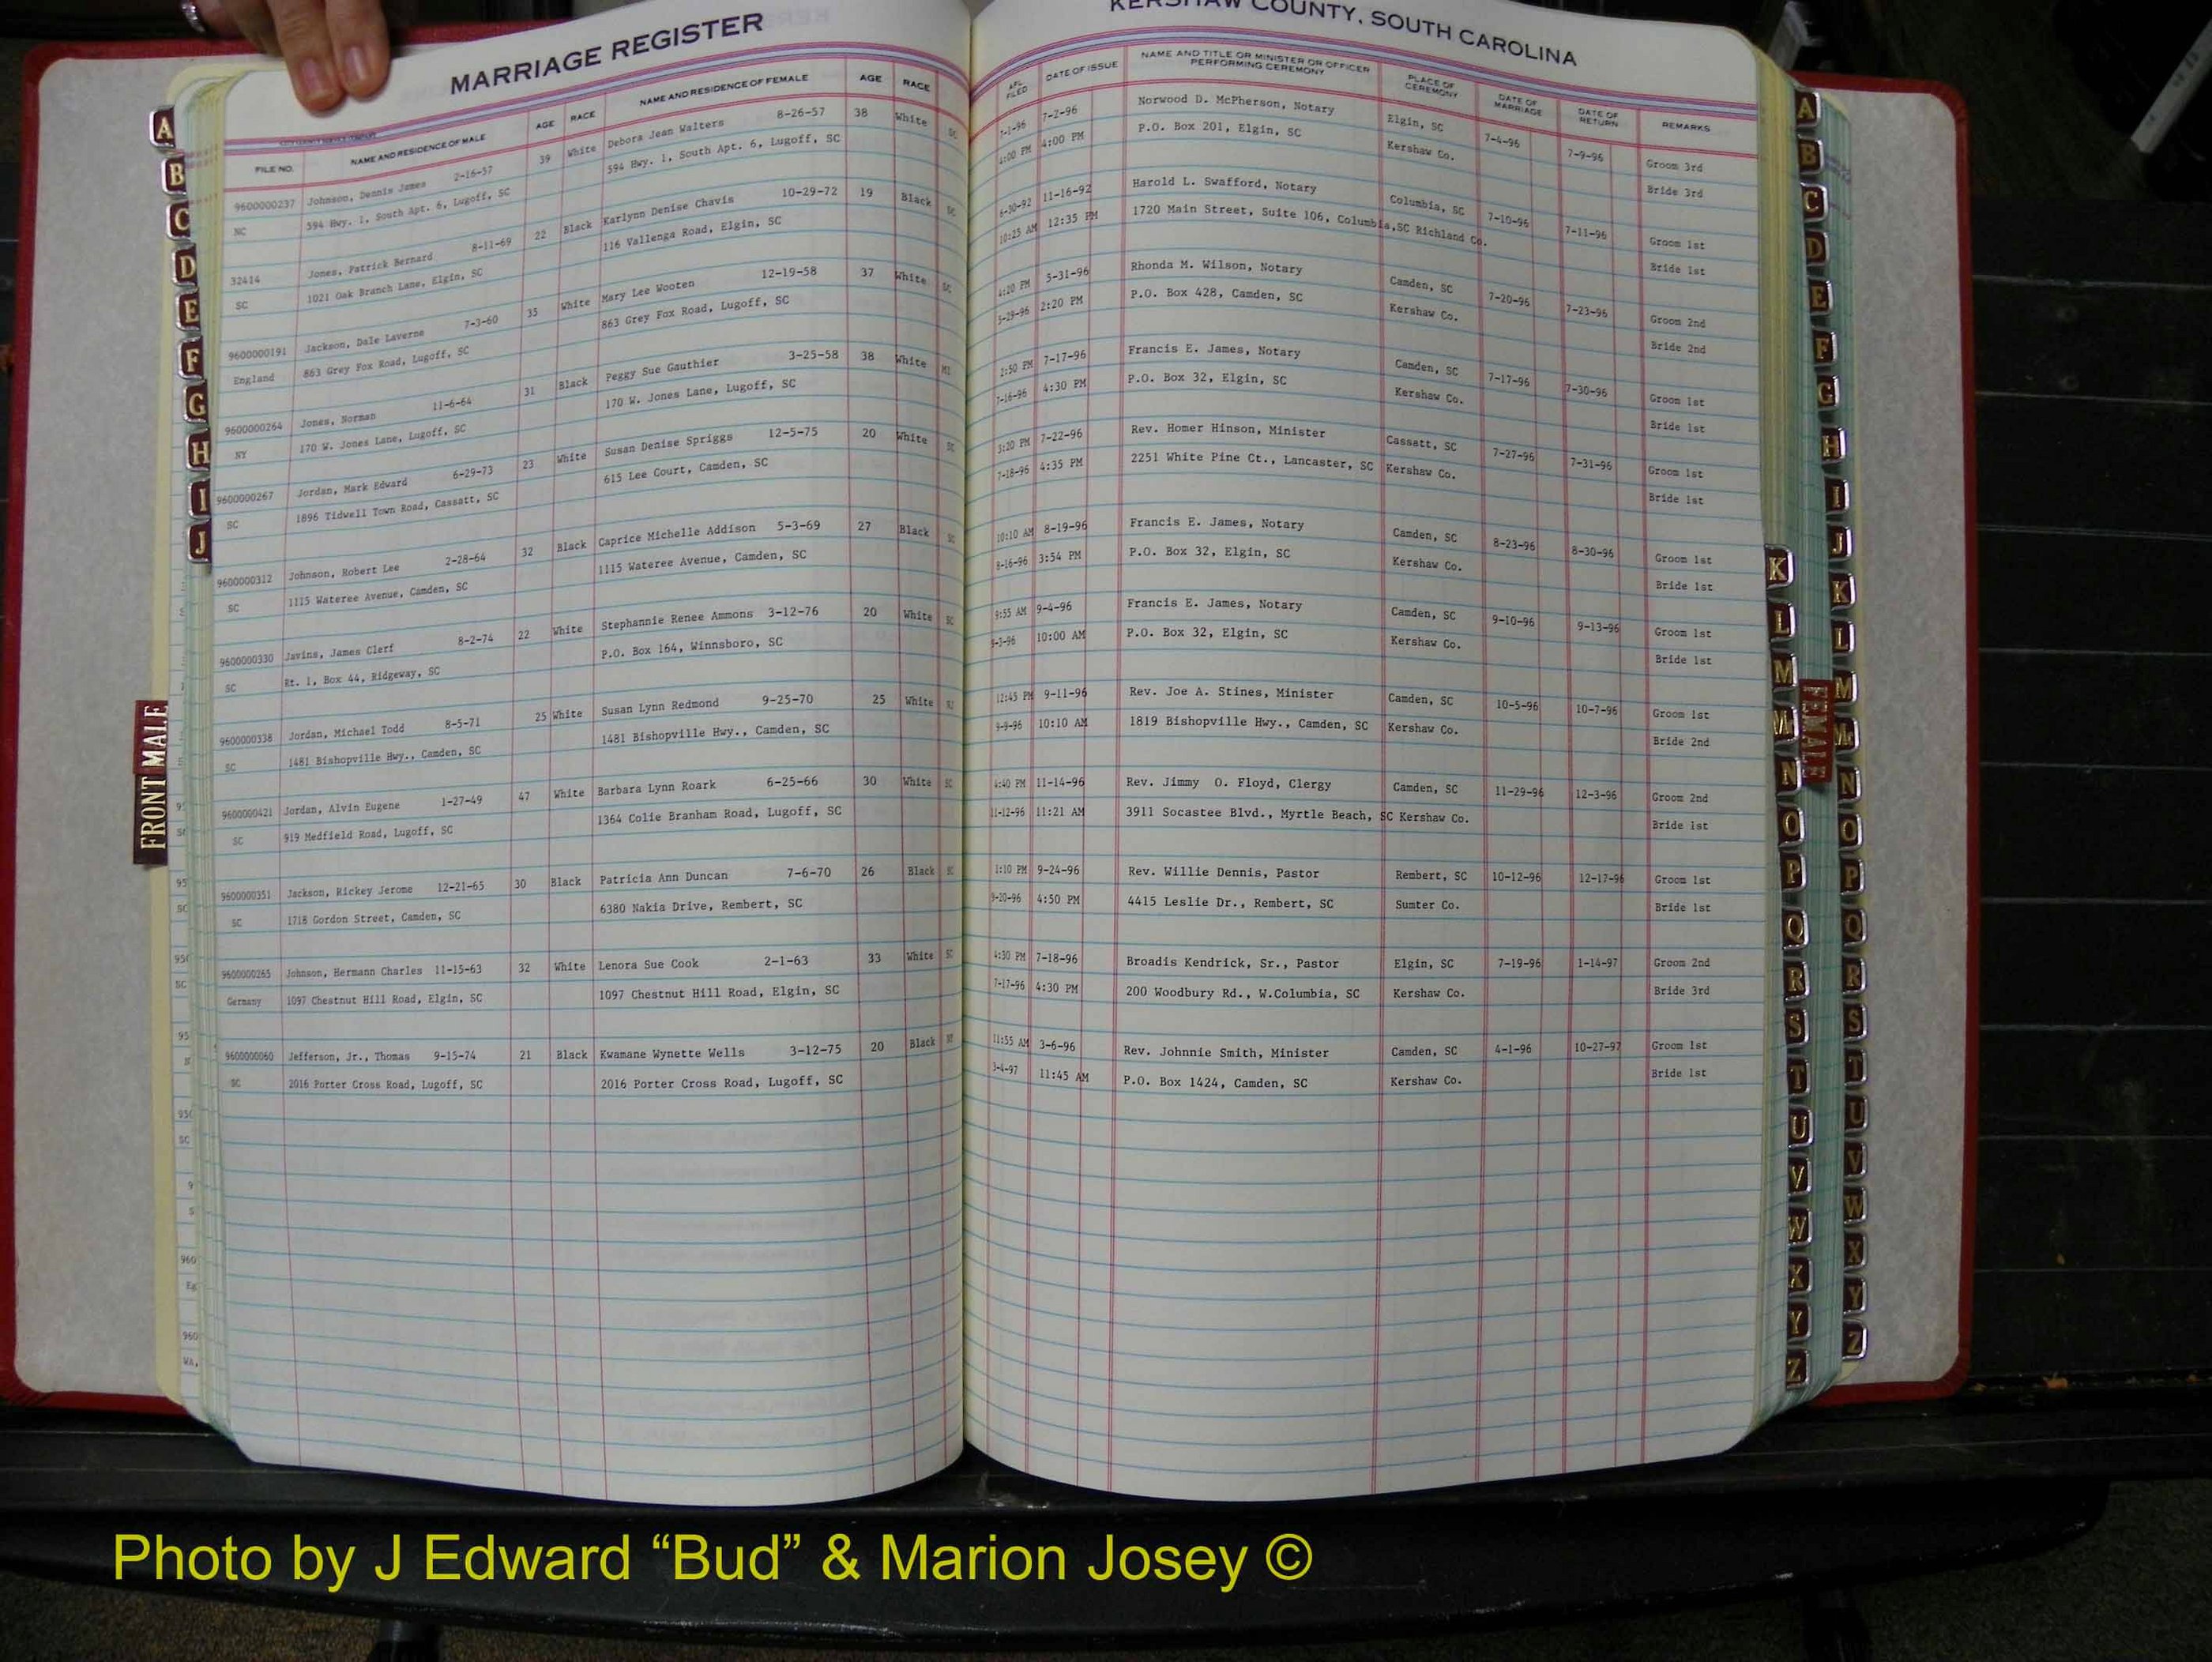 MARRIAGE REGISTER
KERSHAW COUNTY, SOUTH CAROLINA
FILE NO. NAME AND RESIDENCE OF MALE AGE RACE NAME AND RESIDENCE OF FEMALE AGE RACE APL. FILED DATE OF ISSUE NAME AND TITLE OR MINISTER OR OFFICER PERFORMING CEREMONY PLACE OF CEREMONY DATE OF MARRIAGE DATE OF RETURN REMARKS
9600000237 Johnson, Dennis James 2-16-57 39 White Debora Jean Walters 8-26-57 38 White SC 7-1-96 7-2-96 Norwood D. McPherson, Notary Elgin, SC 7-4-96 7-9-96 Groom 3rd
NC 594 Hwy. 1, South Apt. 6, Lugoff, SC 594 Hwy. 1, South Apt. 6, Lugoff, SC 4:00 PM 4:00 PM P.O. Box 201, Elgin, SC Kershaw Co. Bride 3rd
32414 Jones, Patrick Bernard 8-11-69 22 Black Karlynn Denise Chavis 10-29-72 19 Black SC 6-30-92 11-16-92 Harold L. Swafford, Notary Columbia, SC 7-10-96 7-11-96 Groom 1st
SC 1021 Oak Branch Lane, Elgin, SC 116 Vallenga Road, Elgin, SC 10:25 AM 12:35 PM 1720 Main Street, Suite 106, Columbia,SC Richland Co. Bride 1st
9600000191 Jackson, Dale Laverne 7-3-60 35 White Mary Lee Wooten 12-19-58 37 White SC 4:20 PM 5-31-96 Rhonda M. Wilson, Notary Camden, SC 7-20-96 7-23-96 Groom 2nd
England 863 Grey Fox Road, Lugoff, SC 863 Grey Fox Road, Lugoff, SC 5-29-96 2:20 PM P.O. Box 428, Camden, SC Kershaw Co. Bride 2nd
9600000264 Jones, Norman 11-6-64 31 Black Peggy Sue Gauthier 3-25-58 38 White MI 2:50 PM 7-17-96 Francis E. James, Notary Camden, SC 7-17-96 7-30-96 Groom 1st
NY 170 W. Jones Lane, Lugoff, SC 170 W. Jones Lane, Lugoff, SC 7-16-96 4:30 PM P.O. Box 32, Elgin, SC Kershaw Co. Bride 1st
9600000267 Jordan, Mark Edward 6-29-73 23 White Susan Denise Spriggs 12-5-75 20 White SC 3:20 PM 7-22-96 Rev. Homer Hinson, Minister Cassatt, SC 7-27-96 7-31-96 Groom 1st
SC 1896 Tidwell Town Road, Cassatt, SC 615 Lee Court, Camden, SC 7-18-96 4:35 PM 2251 White Pine Ct., Lancaster, SC Kershaw Co. Bride 1st
9600000312 Johnson, Robert Lee 2-28-64 32 Black Caprice Michelle Addison 5-3-69 27 Black SC 10:10 AM 8-19-96 Francis E. James, Notary Camden, SC 8-23-96 8-30-96 Groom 1st
SC 1115 Wateree Avenue, Camden, SC 1115 Wateree Avenue, Camden, SC 8-16-96 3:54 PM P.O. Box 32, Elgin, SC Kershaw Co. Bride 1st
9600000330 Javins, James Clerf 8-2-74 22 White Stephannie Renee Ammons 3-12-76 20 White SC 9:55 AM 9-4-96 Francis E. James, Notary Camden, SC 9-10-96 9-13-96 Groom 1st
SC Rt. 1, Box 44, Ridgeway, SC P.O. Box 164, Winnsboro, SC 9-3-96 10:00 AM P.O. Box 32, Elgin, SC Kershaw Co. Bride 1st
9600000338 Jordan, Michael Todd 8-5-71 25 White Susan Lynn Redmond 9-25-70 25 White 12:45 PM 9-11-96 Rev. Joe A. Stines, Minister Camden, SC 10-5-96 10-7-96 Groom 1st
SC 1481 Bishopville Hwy., Camden, SC 1481 Bishopville Hwy., Camden, SC 9-9-96 10:10 AM 1819 Bishopville Hwy., Camden, SC Kershaw Co. Bride 2nd
9600000421 Jordan, Alvin Eugene 1-27-49 47 White Barbara Lynn Roark 6-25-66 30 White SC 4:40 PM 11-14-96 Rev. Jimmy O. Floyd, Clergy Camden, SC 11-29-96 12-3-96 Groom 2nd
SC 919 Medfield Road, Lugoff, SC 1364 Colie Branham Road, Lugoff, SC 11-12-96 11:21 AM 3911 Socastee Blvd., Myrtle Beach, SC Kershaw Co. Bride 1st
9600000351 Jackson, Rickey Jerome 12-21-65 30 Black Patricia Ann Duncan 7-6-70 26 Black SC 1:10 PM 9-24-96 Rev. Willie Dennis, Pastor Rembert, SC 10-12-96 12-17-96 Groom 1st
SC 1718 Gordon Street, Camden, SC 6380 Nakia Drive, Rembert, SC 9-20-96 4:50 PM 4415 Leslie Dr., Rembert, SC Sumter Co. Bride 1st
9600000265 Johnson, Hermann Charles 11-15-63 32 White Lenora Sue Cook 2-1-63 33 White SC 4:30 PM 7-18-96 Broadis Kendrick, Sr., Pastor Elgin, SC 7-19-96 1-14-97 Groom 2nd
Germany 1097 Chestnut Hill Road, Elgin, SC 1097 Chestnut Hill Road, Elgin, SC 7-17-96 4:30 PM 200 Woodbury Rd., W.Columbia, SC Kershaw Co. Bride 3rd
9600000060 Jefferson, Jr., Thomas 9-15-74 21 Black Kwamane Wynette Wells 3-12-75 20 Black 11:55 AM 3-6-96 Rev. Johnnie Smith, Minister Camden, SC 4-1-96 10-27-97 Groom 1st
SC 2016 Porter Cross Road, Lugoff, SC 2016 Porter Cross Road, Lugoff, SC 3-4-97 11:45 AM P.O. Box 1424, Camden, SC Kershaw Co. Bride 1st
A
B
C
D
E
F
G
H
I
J
FRONT MALE
K
L
M
Mc
N
O
P
Q
R
S
T
U
V
W
X
Y
Z
FEMALE
A
B
C
D
E
F
G
H
I
J
K
L
M
Mc
N
O
P
Q
R
S
T
U
V
W
X
Y
Z
Photo by J Edward “Bud” & Marion Josey ©